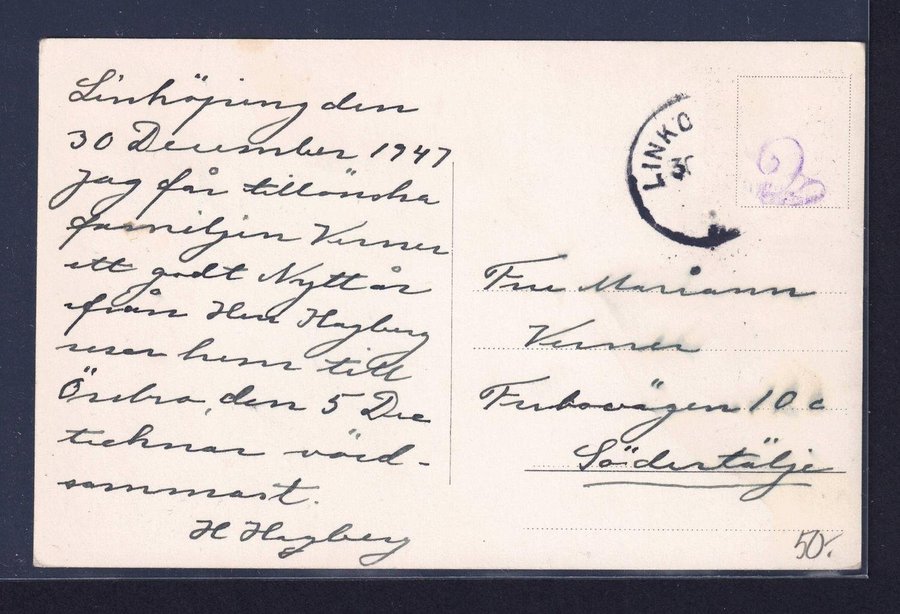 Linköping den
30 December 1947
Jag får tillönska
familjen Verner
ett godt Nytt år
från Herr Hagberg
reser hem till
Örebro, den 5 Dec
tecknar vörd-
sammast.
H Hagberg
LINKO
30
Fru Mariann
Verner
10 c
Södertälje
50:-